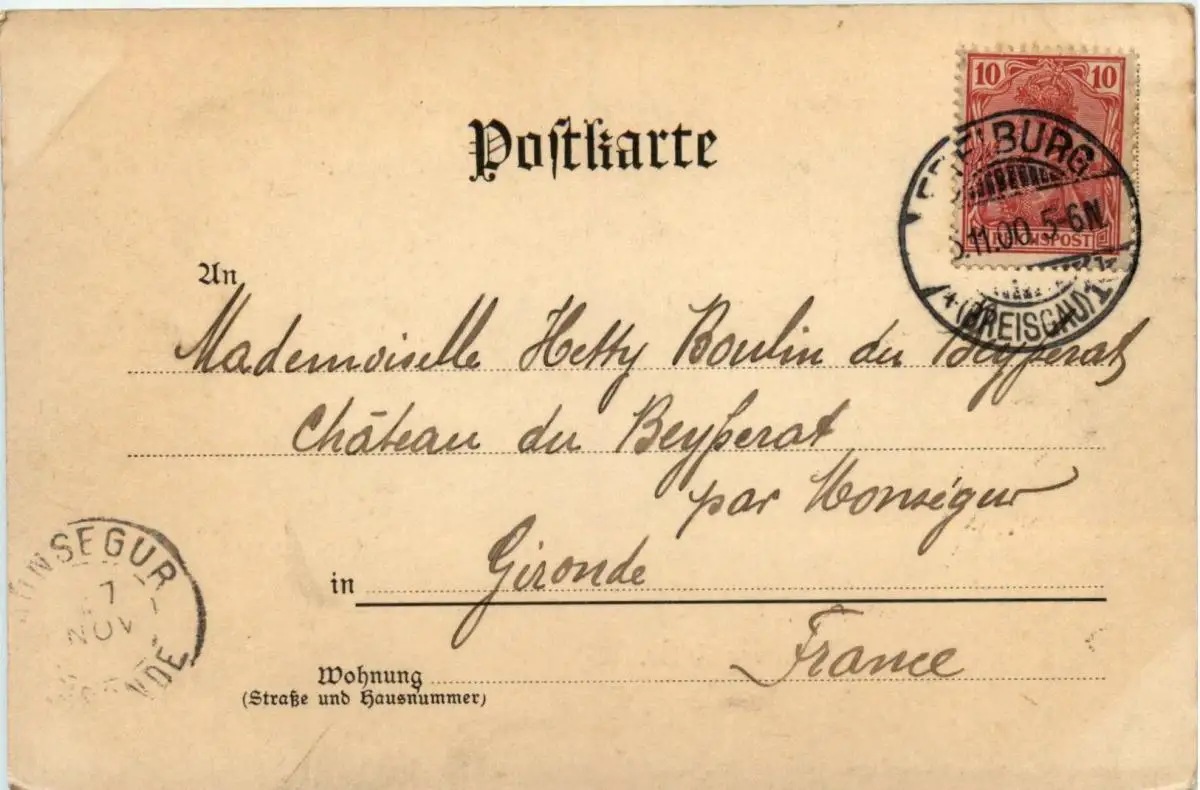 Postkarte
10 10
REICHSPOST
FREIBURG
.11.00. 5-6N.
* (BREISGAU) 1
An
Mademoiselle Hetty Boulin du Beyßerat
Château du Beyßerat
par Monségur
in Gironde
France
Wohnung
(Straße und Hausnummer)
MONSEGUR
7
NOV
GIRONDE